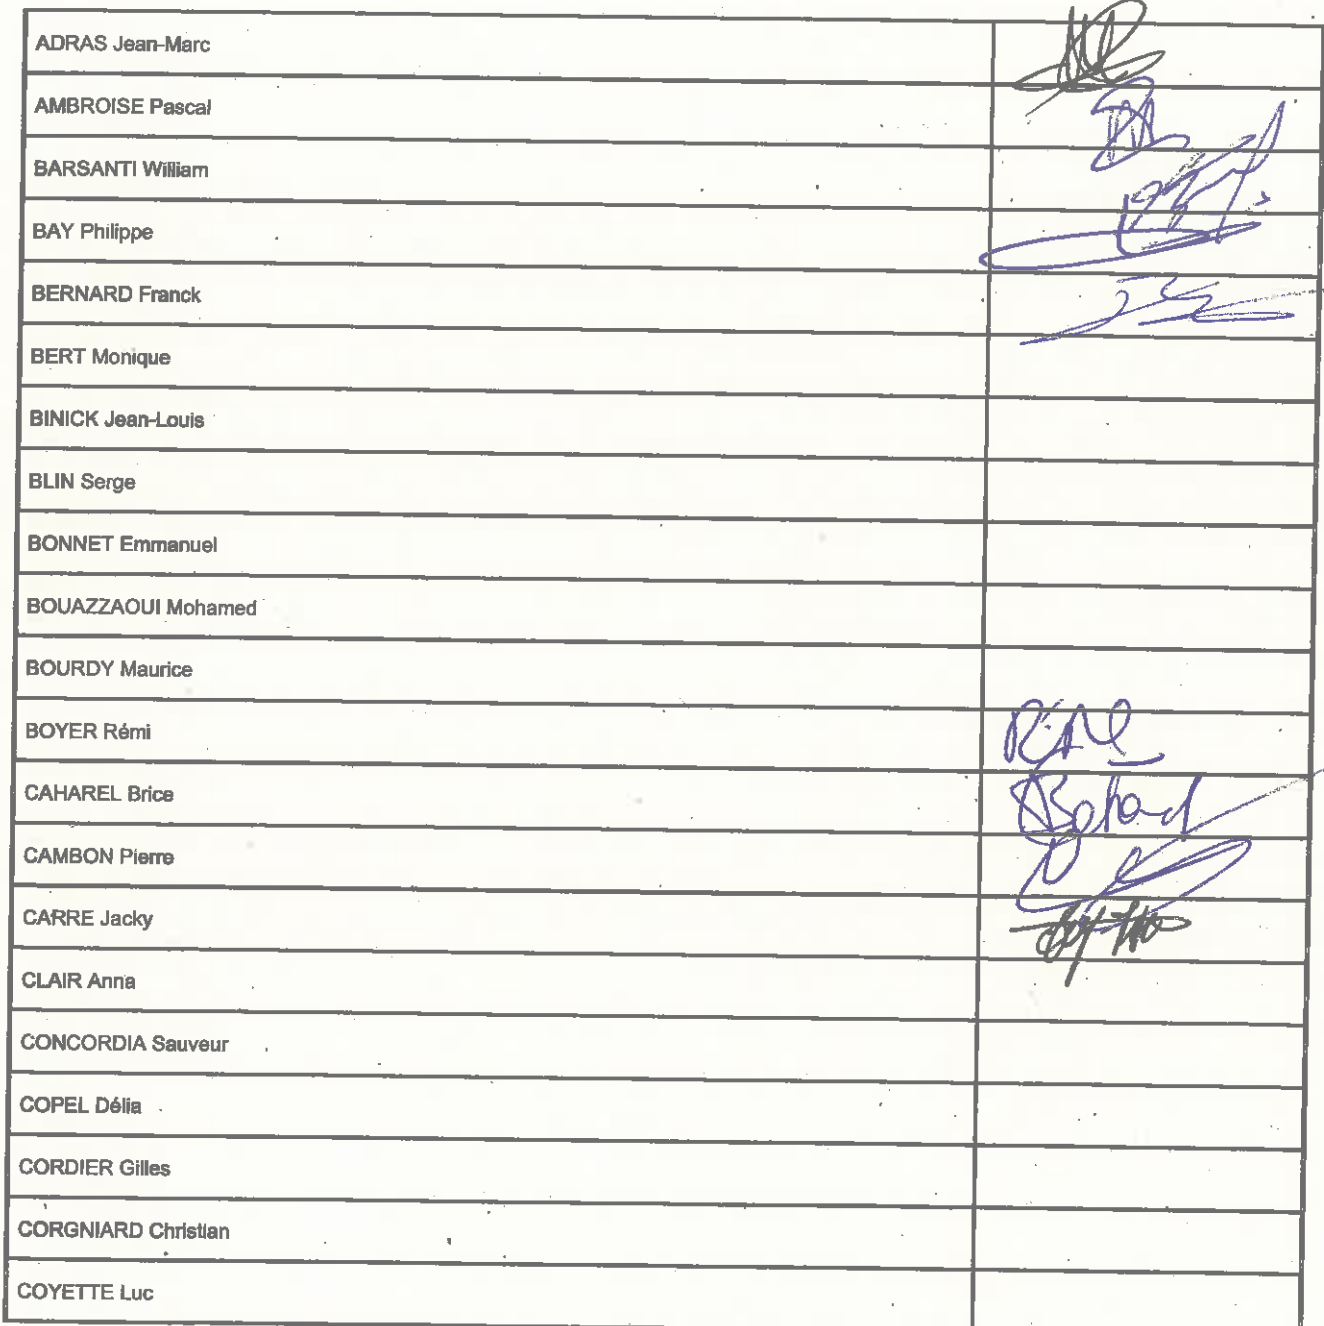 ADRAS Jean-Marc
AMBROISE Pascal
BARSANTI William
BAY Philippe
BERNARD Franck
BERT Monique
BINICK Jean-Louis
BLIN Serge
BONNET Emmanuel
BOUAZZAOUI Mohamed
BOURDY Maurice
BOYER Rémi
CAHAREL Brice
CAMBON Pierre
CARRE Jacky
CLAIR Anna
CONCORDIA Sauveur
COPEL Délia
CORDIER Gilles
CORGNIARD Christian
COYETTE Luc